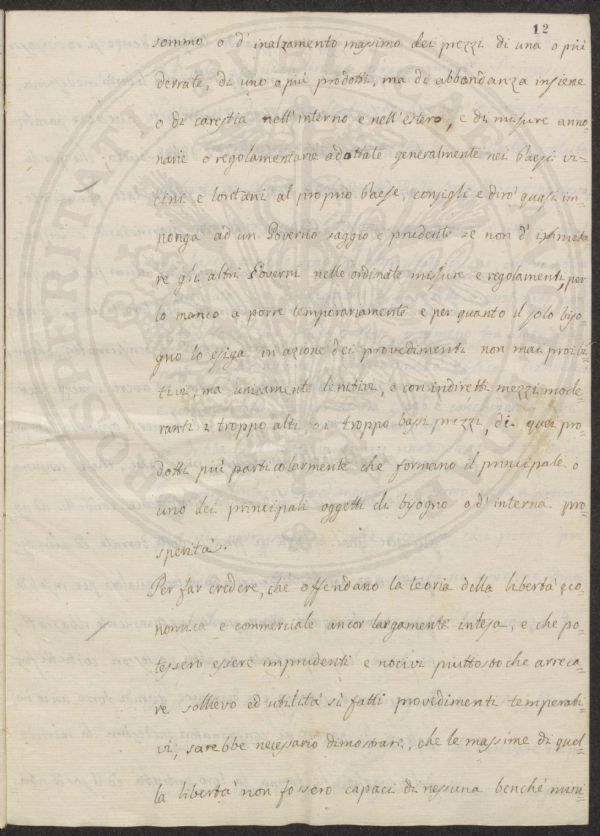 12
sommo o d' inalzamento massimo dei prezzi di una o più
derrate, di uno o più prodotti, ma di abbondanza insieme
o di carestia nell'interno e nell'estero, e di misure anno-
narie o regolamentarie adottate generalmente nei Paesi vi-
cini e lontani al proprio Paese, consigli e dirò quasi im-
ponga ad un Governo saggio e prudente se non d'
re gli altri Governi nelle ordinate misure e regolamenti, per
lo manco a porre temperariamente e per quanto il solo biso-
gno lo esiga in azione dei provedimenti non mai proibi-
tivi, ma unicamente lenitivi, o con indiretti mezzi mode-
ranti i troppo alti o i troppo bassi prezzi, di quei pro-
dotti più particolarmente che formano il principale o
uno dei principali oggetti di bisogno o d' interna pro-
sperità.
Per far credere, che offendano la teoria della libertà eco-
nomica e commerciale ancor largamente intesa, e che po-
tessero essere imprudenti e nocivi piuttosto che arreca-
re sollievo ed utilità sì fatti provedimenti temperati-
vi, sarebbe necessario dimostrare, che le massime di quel-
la libertà non fossero capaci di nessuna benché mini-
PROSPERITATI PUBLICAE